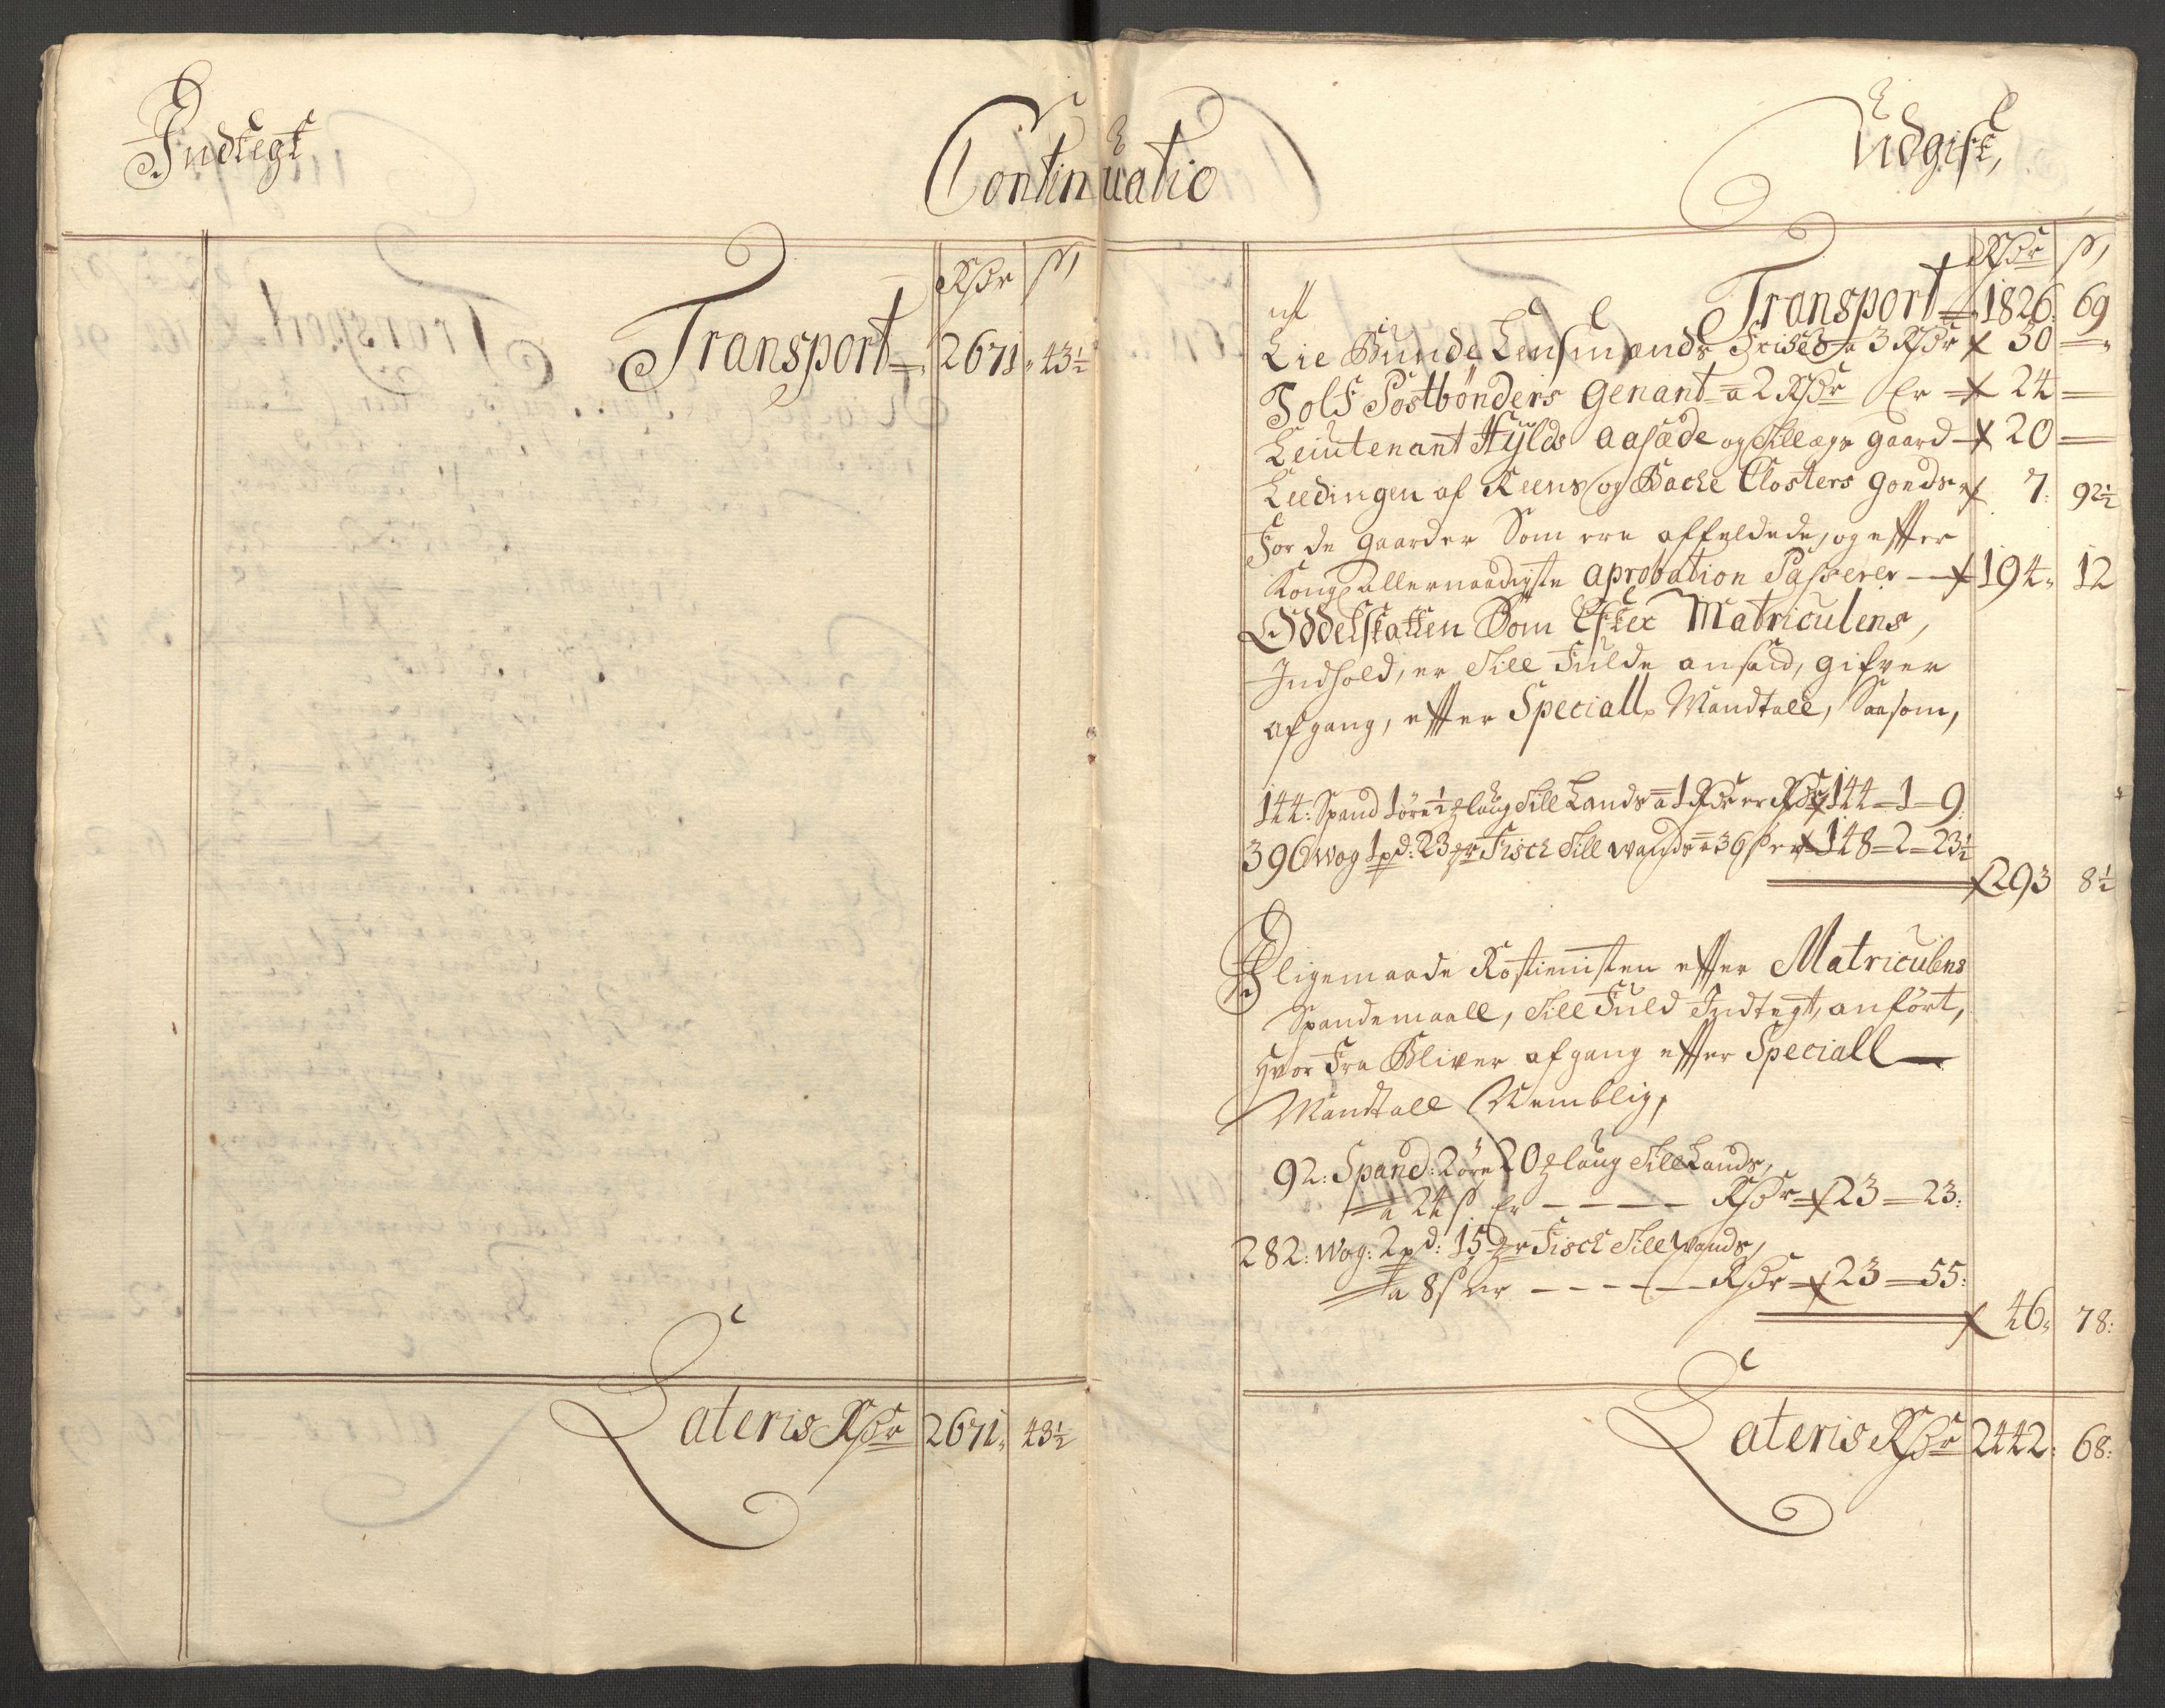 Indtegt
Continuatio
Udgift,
Rdr ß
Transport 2671 43½
Lateris Rdr 2671 43½
Rdr ß
Transport 1826 69
Tie Bunde Lensmænds Friheds a 3 Rdr 30 —
Tolf Postbønders Genant a 2 Rdr Er 24 —
Leiutenant Hylds Aasæde og Tillægs gaard 20 —
Leedingen af Reens og Backe Closters Gods 7: 92½
For de gaarder Som ere affeldede, og efter
Kongl allernaadigste aprobation Passerer 194 12
Oddelskatten Som Efter Matriculens,
Indhold, er Till Fulde anførd, gifver
afgang, efter Speciall Mandtall, Saasom,
144: Spand 1 øre ½ laug Till Lands a 1 Rdr er Rdr 144 — 1 — 9
396 wog 1 pd: 23 Fisch Till wands a 36 ß er 148 — 2 — 23½
293 8½
I ligemaade Rostienisten efter Matriculens
Spandemaall, Till Fuld Indtegt, anført,
Hvor Fra Bliver afgang efter Speciall
Mandtall Nemblig,
92: Spand: 2 øre 20 laug Till Lands,
a 24 ß Er — — — — Rdr 23 — 23:
282: Wog: 2 pd: 15 Fisch Till Wands,
a 8 ß er — — — — Rdr 23 — 55:
46 78:
Lateris Rdr 2442: 68: